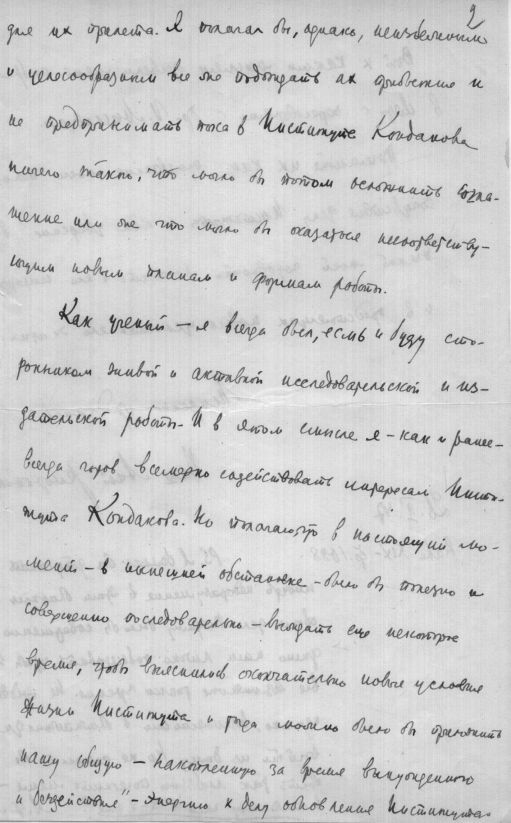 2
для их прилета. Я полагал бы, однако, неизбежным
и целесообразным все же подождать их прибытие и
не предпринимать пока в Институте Кондакова
ничего такого, что могло бы потом осложнить
или же что могло бы оказаться несоответству-
ющим новым планам и формам работы.
Как ученый – я всегда был, есмь и буду сто-
ронником живой и активной исследовательской и из-
дательской работы. И в этом смысле я – как и ранее –
всегда готов всемерно содействовать интересам Инсти-
тута Кондакова. Но полагаю, что в настоящий мо-
мент – в нынешней обстановке – было бы полезно и
совершенно последовательно – выждать еще некоторое
время, чтобы выяснились окончательно новые условия
жизни Института и тогда можно было бы приложить
нашу общую – накопленную за время вынужденного
„бездействия" – энергию к делу обновления Института.